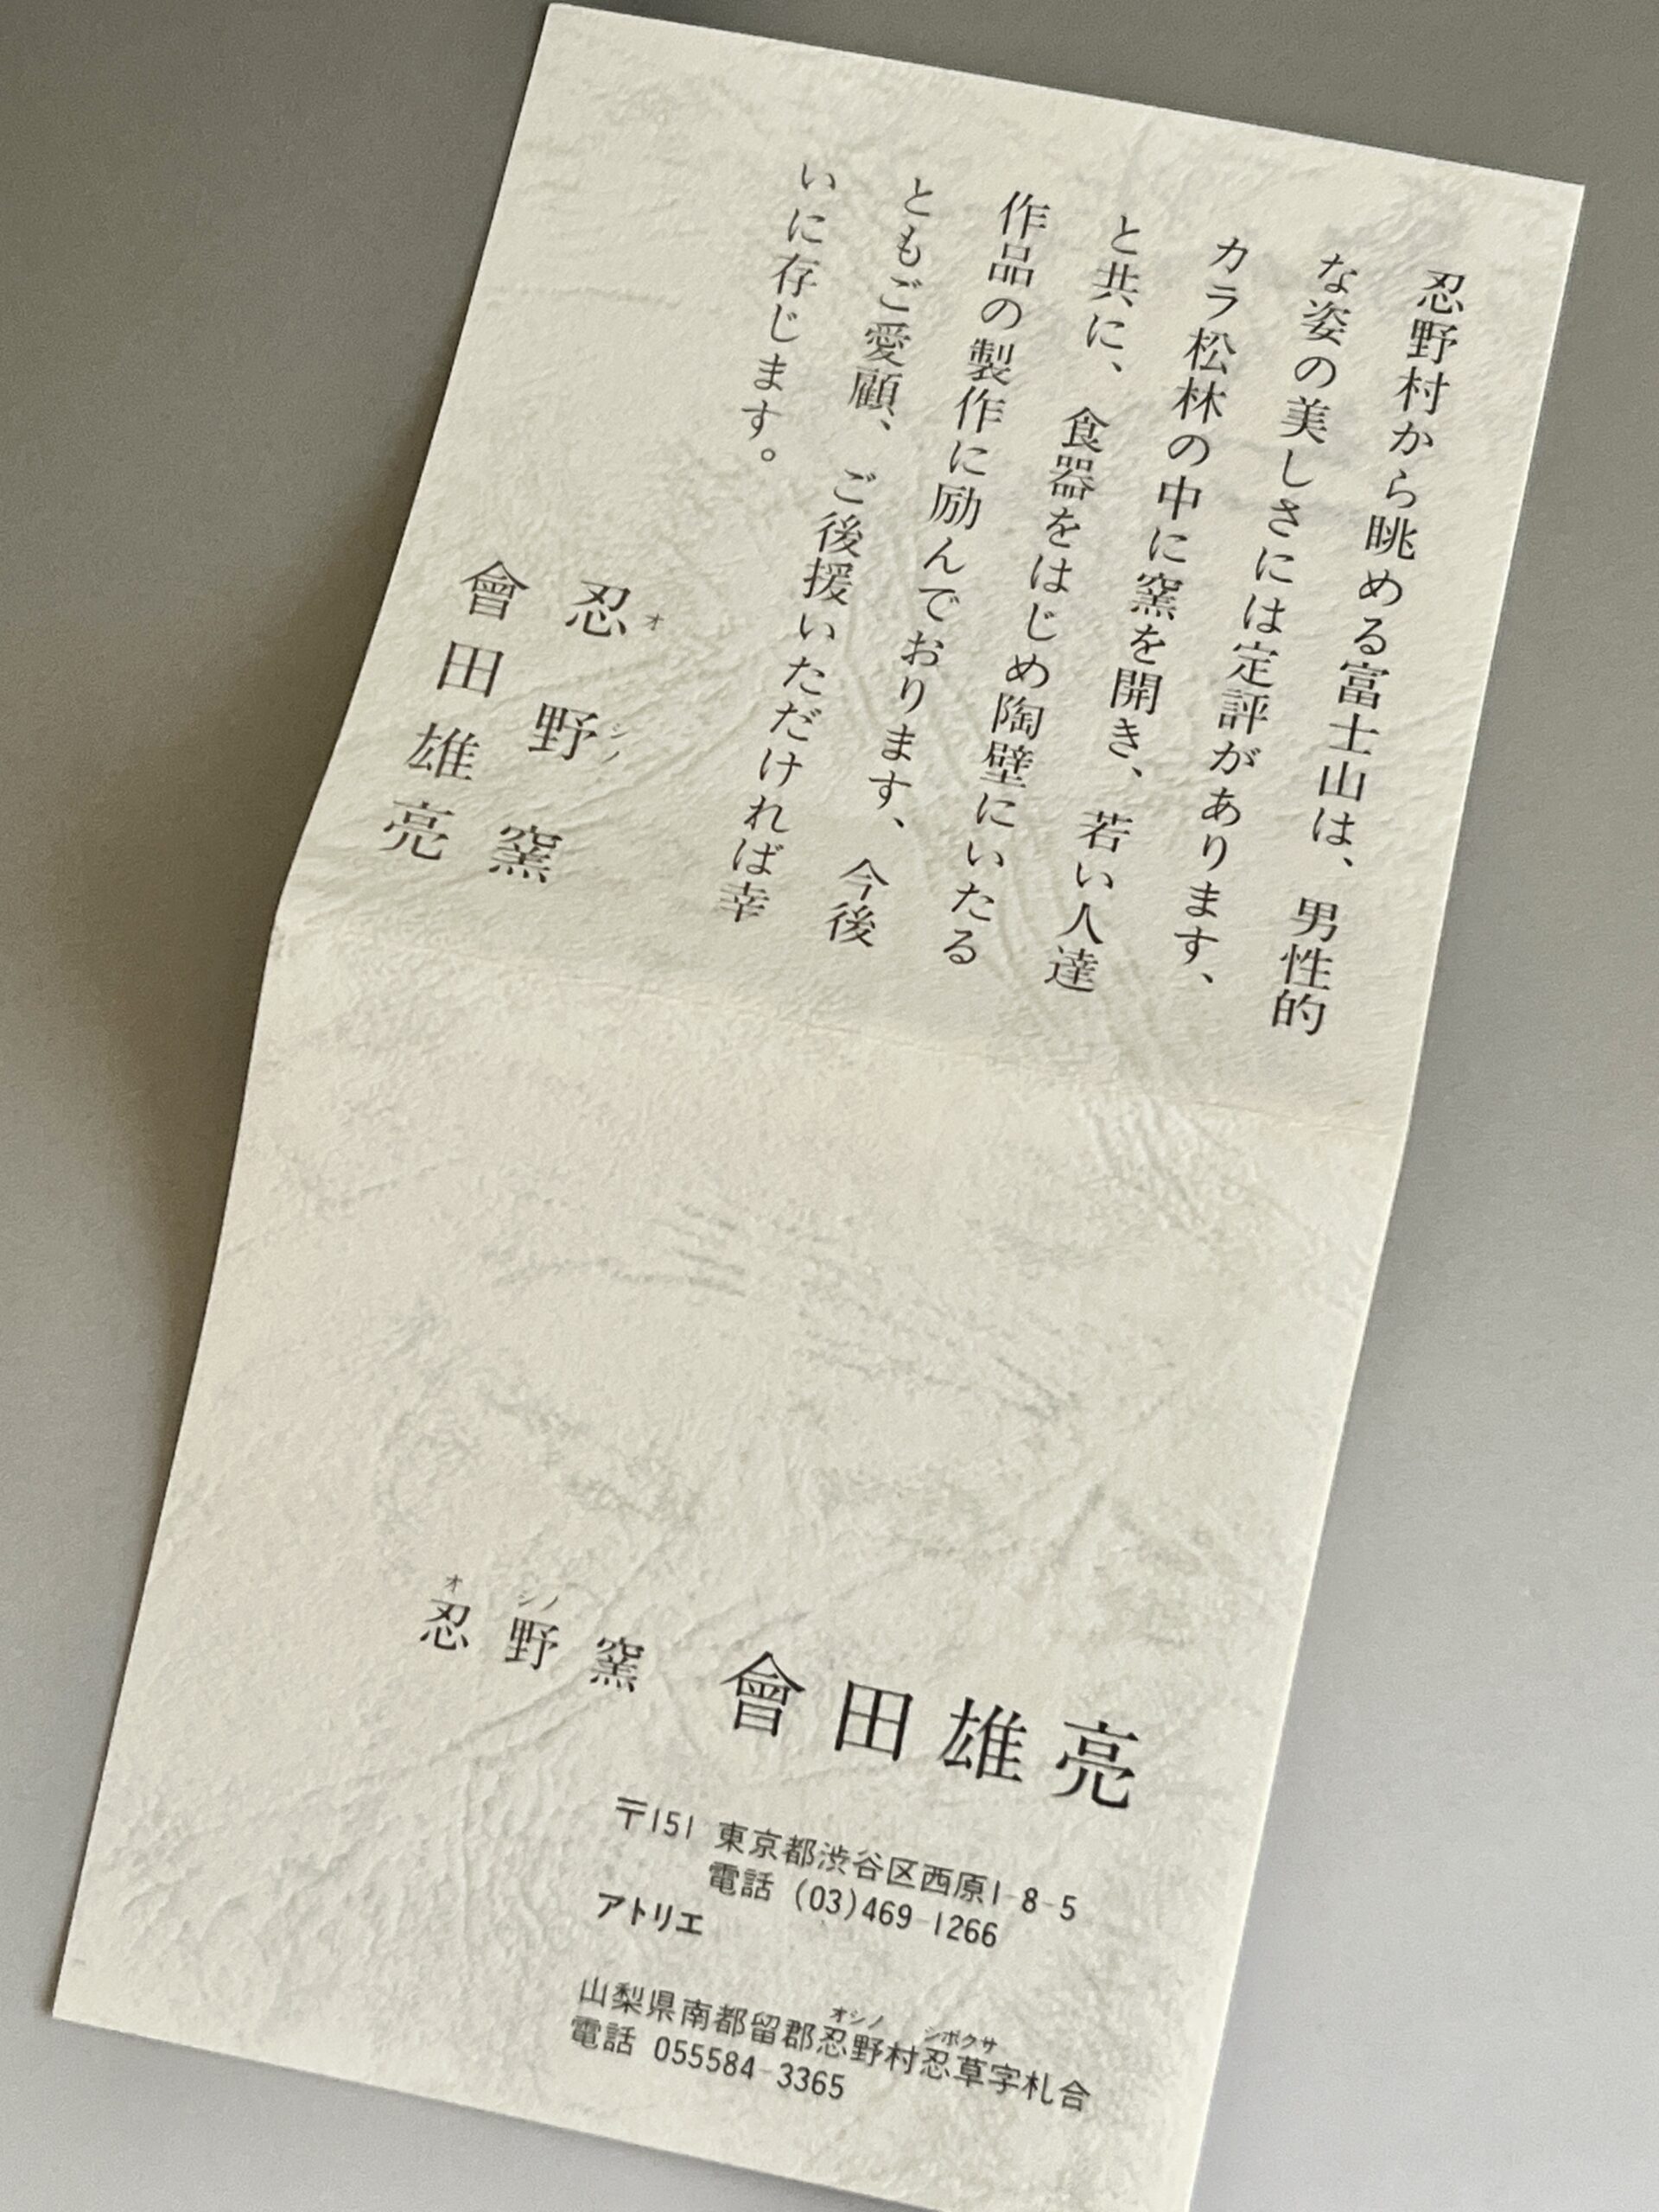 忍野村から眺める富士山は、男性的
な姿の美しさには定評があります、
カラ松林の中に窯を開き、若い人達
と共に、食器をはじめ陶壁にいたる
作品の製作に励んでおります、今後
ともご愛顧、ご後援いただければ幸
いに存じます。
オシノ
忍野窯
會田雄亮
オシノ
忍野窯 會田雄亮
〒151 東京都渋谷区西原1-8-5
電話 (03)469-1266
アトリエ
オシノ シボクサ
山梨県南都留郡忍野村忍草字札合
電話 055584-3365